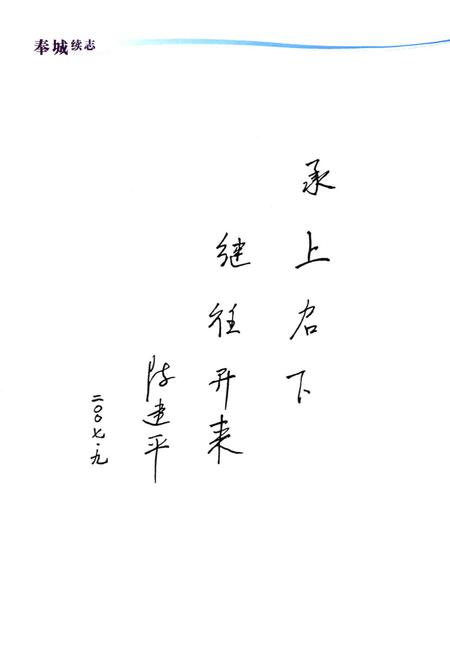 奉城续志
承上启下
继往开来
陈建平
二〇〇七·九